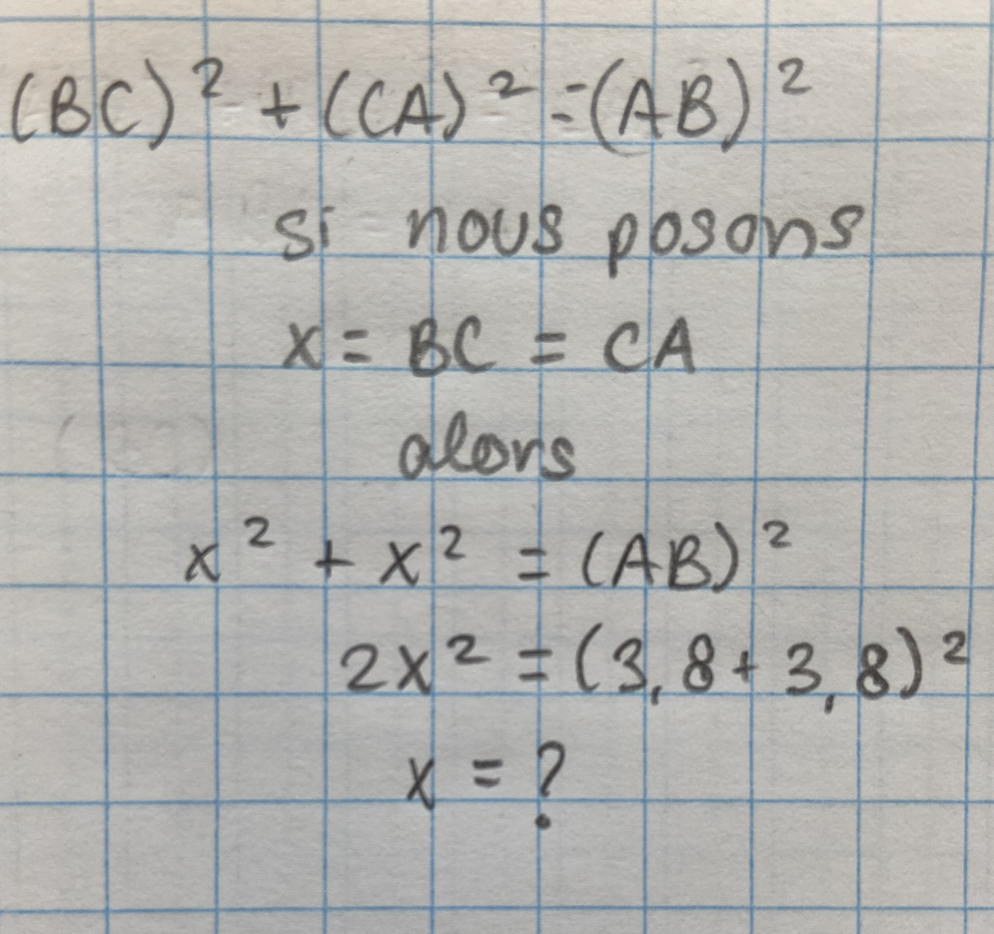 (BC)² + (CA)² = (AB)²
si nous posons
x = BC = CA
alors
x² + x² = (AB)²
2x² = (3,8 + 3,8)²
x = ?